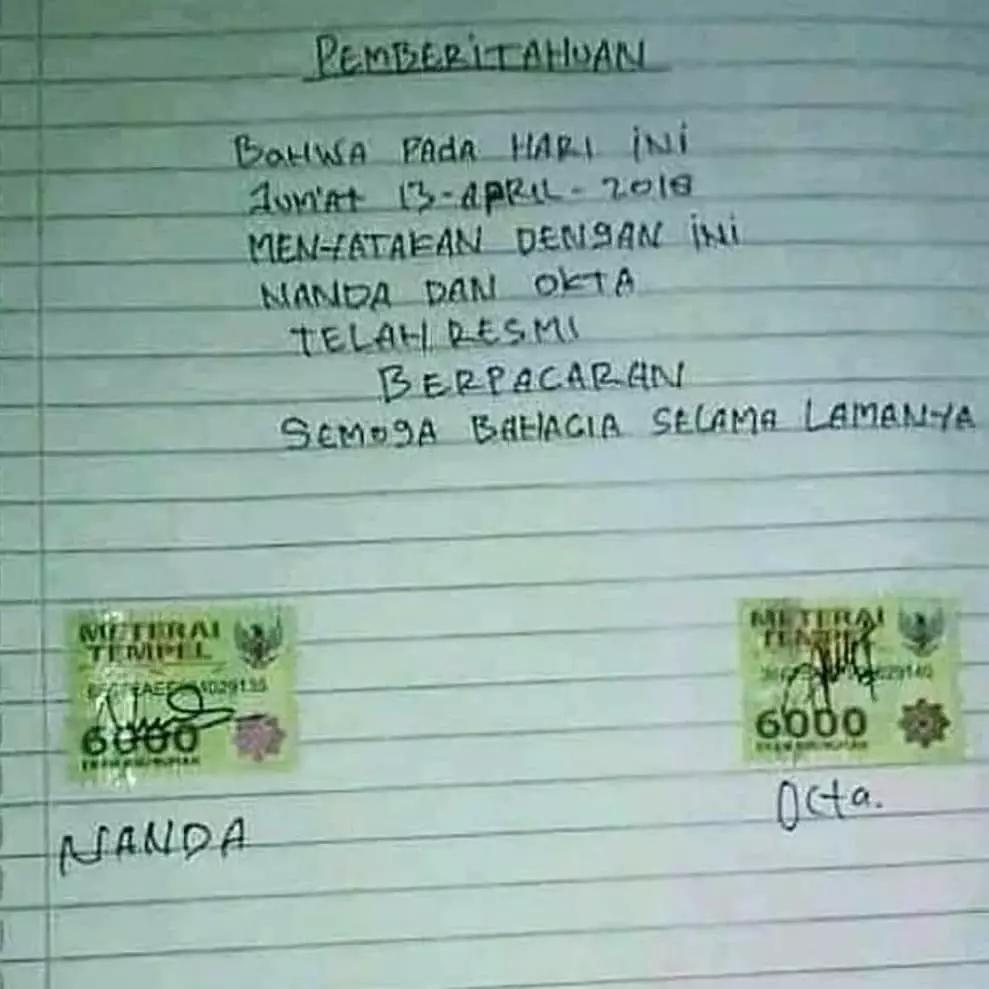 PEMBERITAHUAN
BAHWA PADA HARI INI
JUM'AT 13-APRIL-2018
MENYATAKAN DENGAN INI
NANDA DAN OKTA
TELAH RESMI
BERPACARAN
SEMOGA BAHAGIA SELAMA LAMANYA
METERAI
TEMPEL
6000
NANDA
METERAI
TEMPEL
6000
Octa.